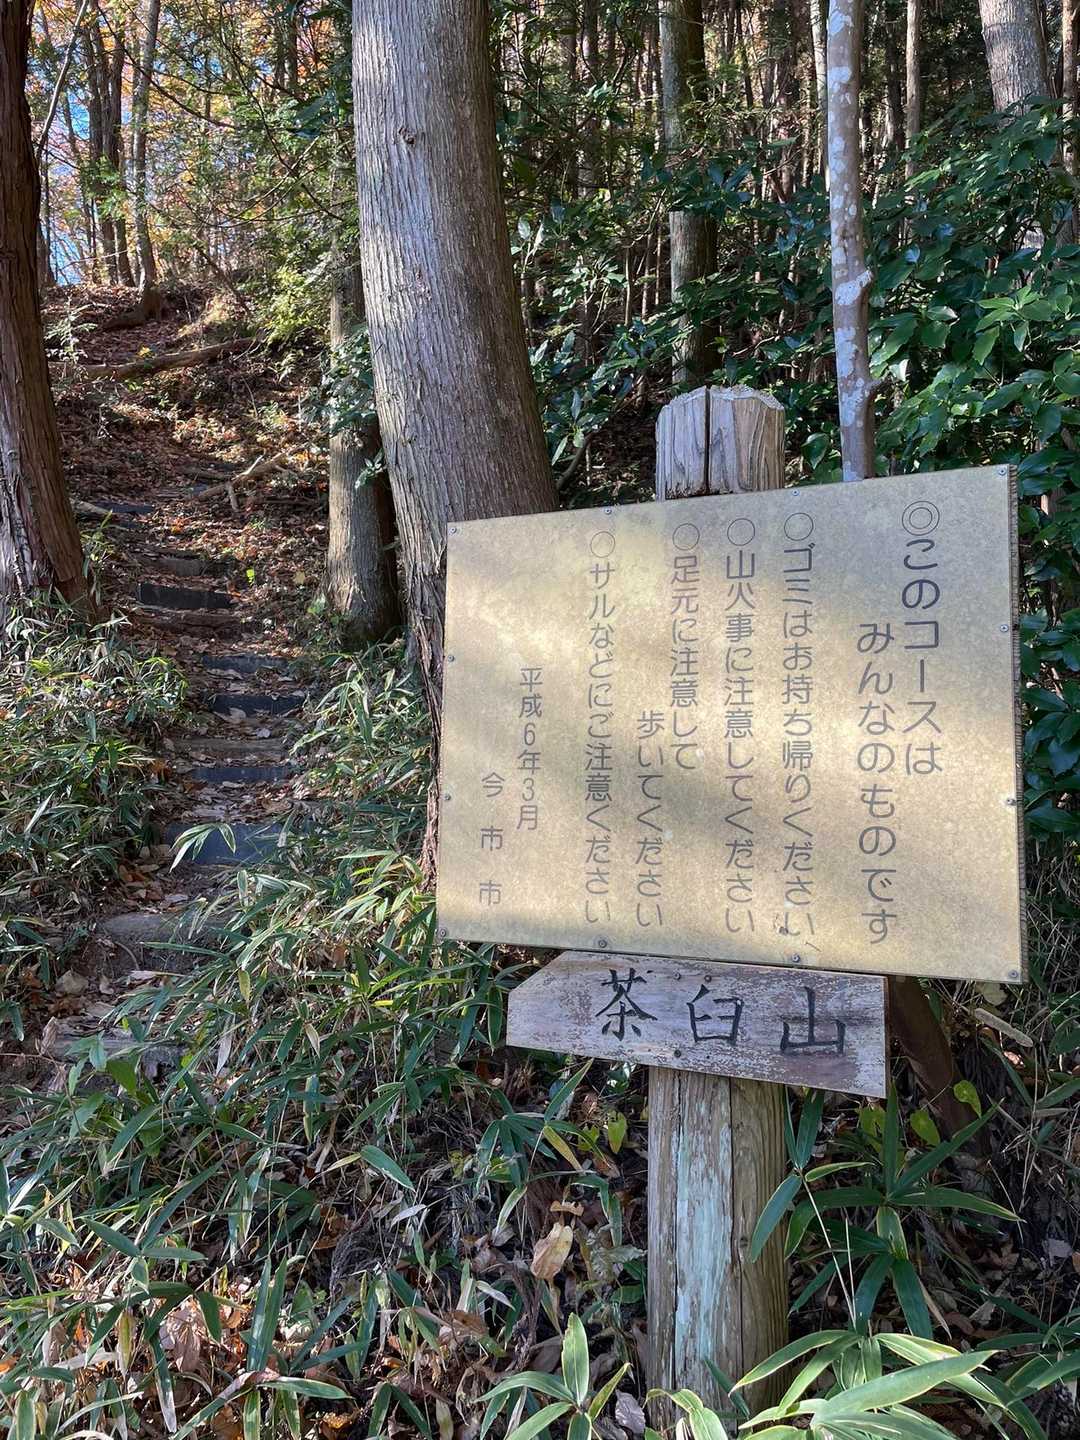 ◎このコースは
みんなのものです
○ゴミはお持ち帰りください
○山火事に注意してください
○足元に注意して
歩いてください
○サルなどにご注意ください
平成6年3月
今市市
茶臼山